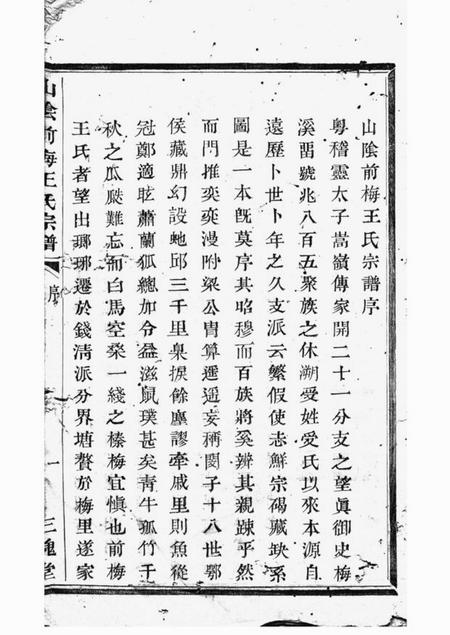 山陰前梅王氏宗譜序
粵稽靈太子嵩嶺傳家開二十一分支之望眞御史梅
溪畱號兆八百五聚族之休朔受姓受氏以來本源自
遠歷卜世卜年之久支派云繁假使志鮮宗碣藏玦系
圖是一本旣莫序其昭穆而百族將奚辨其親踈乎然
而門推奕奕漫附梁公胄算遷遥妄稱閔子十八世鄂
侯藏鼎幻設虵邱三千里臬捩餘塵謬牽戚里則魚從
冠鄭適眩蕭蘭狐總加令益滋鼠璞甚矣靑牛孤竹千
秋之瓜瓞難忘而白馬空桑一綫之榛梅宜愼也前梅
王氏者望出瑯琊遷於錢淸派分界塘贅於梅里遂家
山陰前梅王氏宗譜
序
一
三槐堂